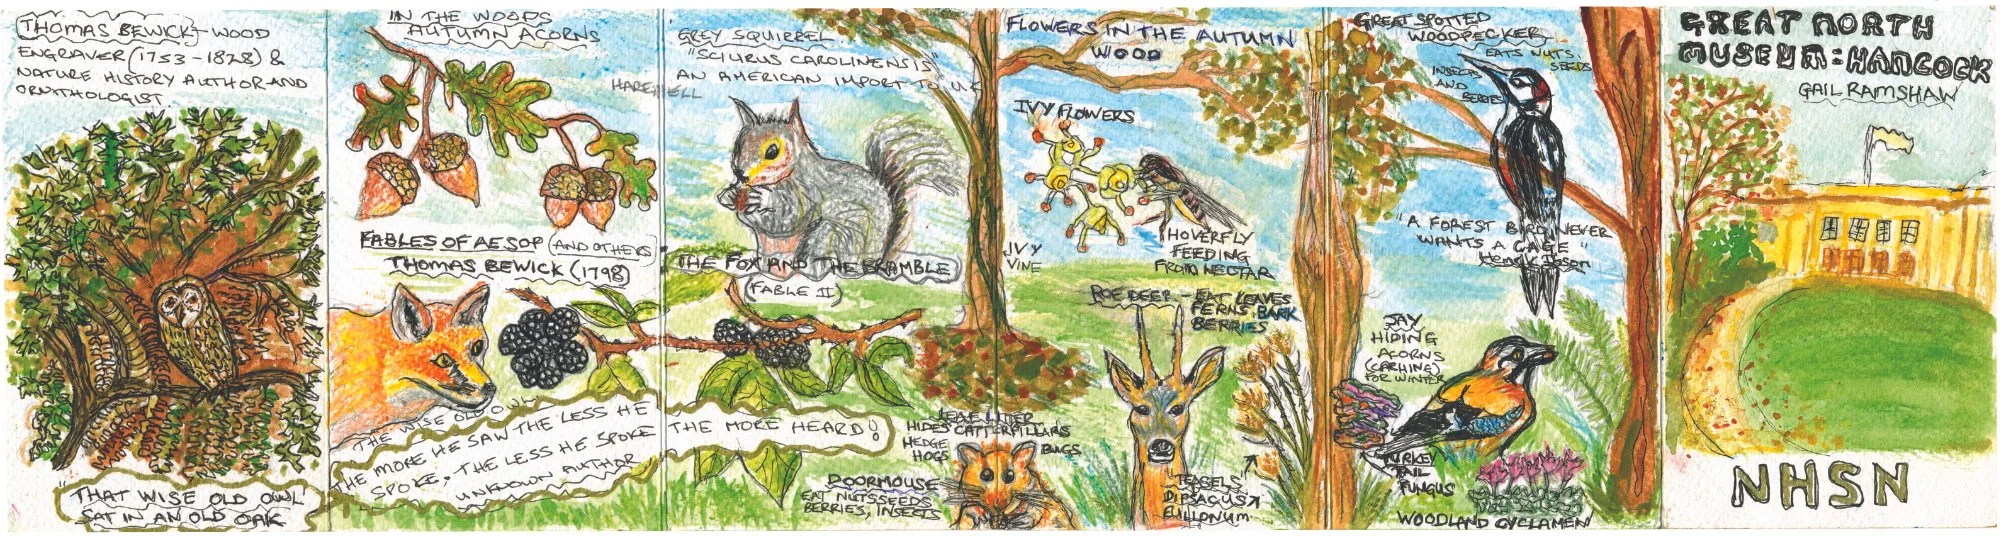 THOMAS BEWICK - WOOD
ENGRAVER (1753-1828) &
NATURE HISTORY AUTHOR AND
ORNITHOLOGIST.
"THAT WISE OLD OWL
SAT IN AN OLD OAK
IN THE WOODS
AUTUMN ACORNS
FABLES OF AESOP (AND OTHERS
THOMAS BEWICK (1798)
THE WISE OLD OWL
THE MORE HE SAW THE LESS HE
SPOKE, THE LESS HE SPOKE
UNKNOWN AUTHOR
THE MORE HEARD!
GREY SQUIRREL
"SCIURUS CAROLINENSIS"
AN AMERICAN IMPORT TO UK
THE FOX AND THE BRAMBLE
(FABLE II)
LEAF LITTER
HIDES CATTERPILLARS
HEDGE BUGS
HOGS
DOORMOUSE
EAT NUTS SEEDS
BERRIES, INSECTS
FLOWERS IN THE AUTUMN
WOOD
IVY FLOWERS
HOVERFLY
FEEDING
FROM NECTAR
IVY
VINE
ROE DEER - EAT LEAVES
FERNS, BARK
BERRIES
"TEASELS"
DIPSACUS
FULLONUM
GREAT SPOTTED
WOODPECKER
EATS NUTS,
SEEDS
INSECTS
AND
BERRIES
"A FOREST BIRD NEVER
WANTS A CAGE"
Henrik Ibson
JAY
HIDING
ACORNS
(CACHING)
FOR WINTER
TURKEY
TAIL
FUNGUS
WOODLAND CYCLAMEN
GREAT NORTH
MUSEUM: HANCOCK
GAIL RAMSHAW
NHSN